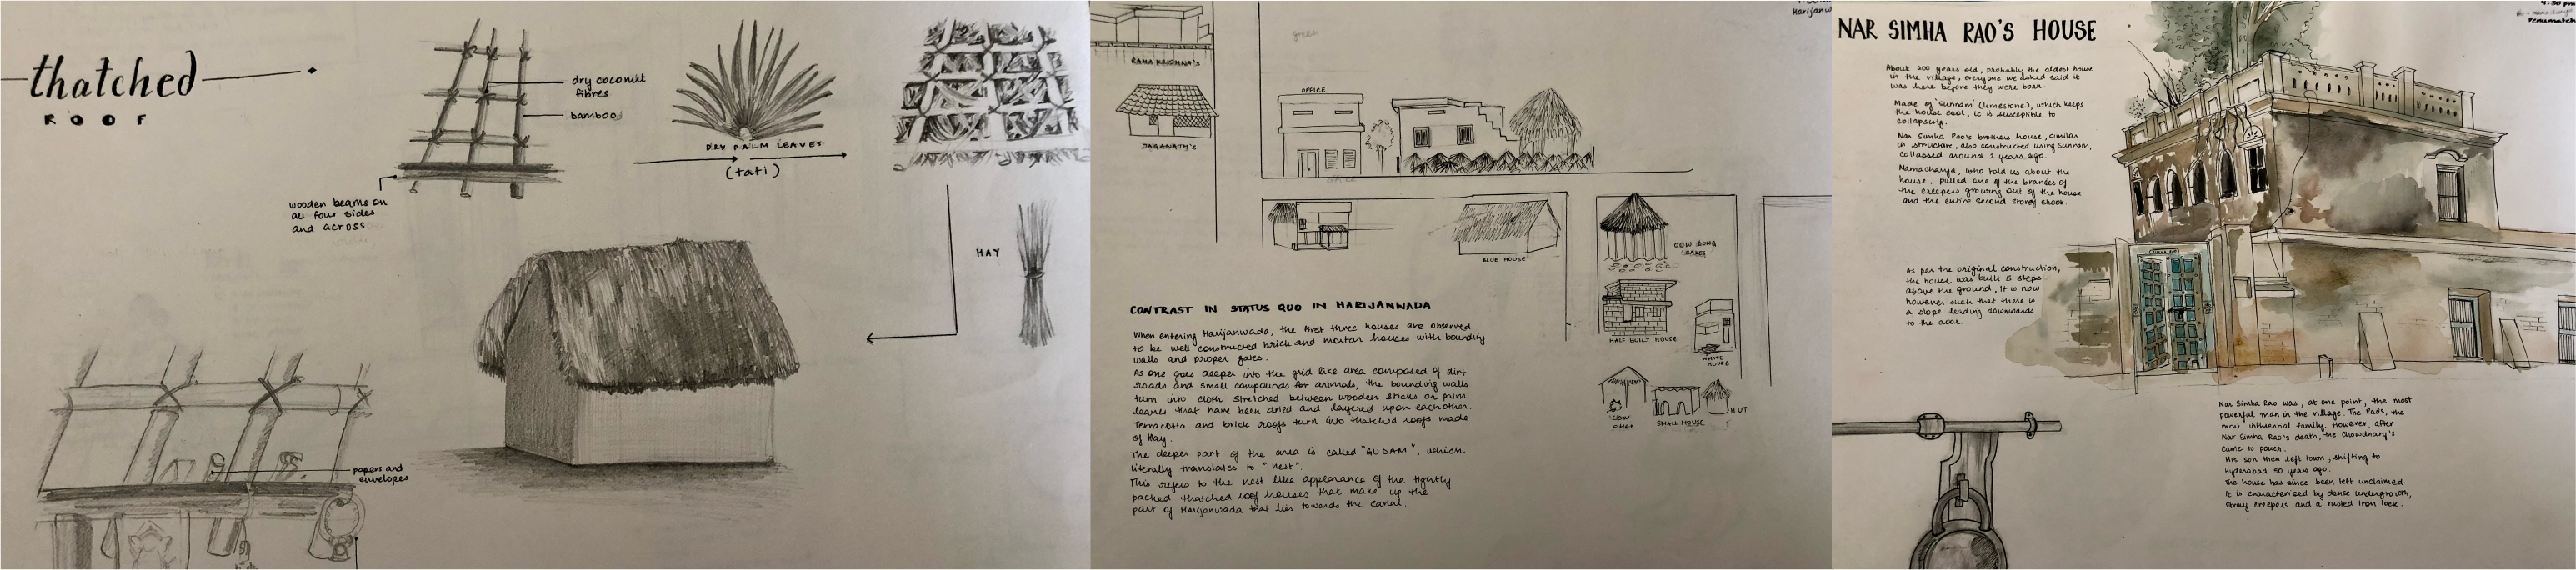 thatched
ROOF
dry coconut
fibres
bamboo
wooden beams on
all four sides
and across
DRY PALM LEAVES
(tati)
HAY
papers and
envelopes
Harijanw
RAMA KRISHNA'S
JAGANATH'S
OFFICE
BLUE HOUSE
COW DUNG
CAKES
HALF BUILT HOUSE
WHITE
HOUSE
COW
SHED
SMALL HOUSE
HUT
CONTRAST IN STATUS QUO IN HARIJANWADA
When entering Harijanwada, the first three houses are observed
to be well constructed brick and mortar houses with bounding
walls and proper gates.
As one goes deeper into the grid like area composed of dirt
roads and small compounds for animals, the bounding walls
turn into cloth stretched between wooden sticks or palm
leaves that have been dried and layered upon eachother.
Terracotta and brick roofs turn into thatched roofs made
of Hay.
The deeper part of the area is called "GUDAM", which
literally translates to "nest".
This refers to the nest like appearance of the tightly
packed thatched roof houses that make up the
part of Harijanwada that lies towards the canal.
NAR SIMHA RAO'S HOUSE
4:30 pm
Penumatch
About 200 years old, probably the oldest house
in the village, everyone we asked said it
was here before they were born.
Made of 'Sunnam' (limestone), which keeps
the house cool, it is susceptible to
collapsing.
Nar Simha Rao's brothers house, similar
in structure, also constructed using Sunnam,
collapsed around 2 years ago.
Namacharya, who told us about the
house, pulled one of the branches of
the creepers growing out of the house
and the entire second storey shook.
As per the original construction,
the house was built 5 steps
above the ground, It is now
however such that there is
a slope leading downwards
to the door.
Nar Simha Rao was, at one point, the most
powerful man in the village. The Rao's, the
most influential family. However, after
Nar Simha Rao's death, the Chowdhary's
came to power.
His son then left town, shifting to
Hyderabad 50 years ago.
The house has since been left unclaimed.
It is characterised by dense undergrowth,
stray creepers and a rusted iron lock.